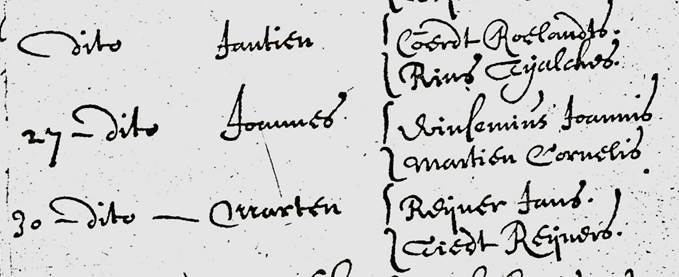 dito Jantien Coerdt Roelandts.
Rius Tjalches.
27 - dito Joannes Winsemius Joannis
Martien Cornelis
30 - dito - Marten Reijner Jans.
Tiedt Reijners.